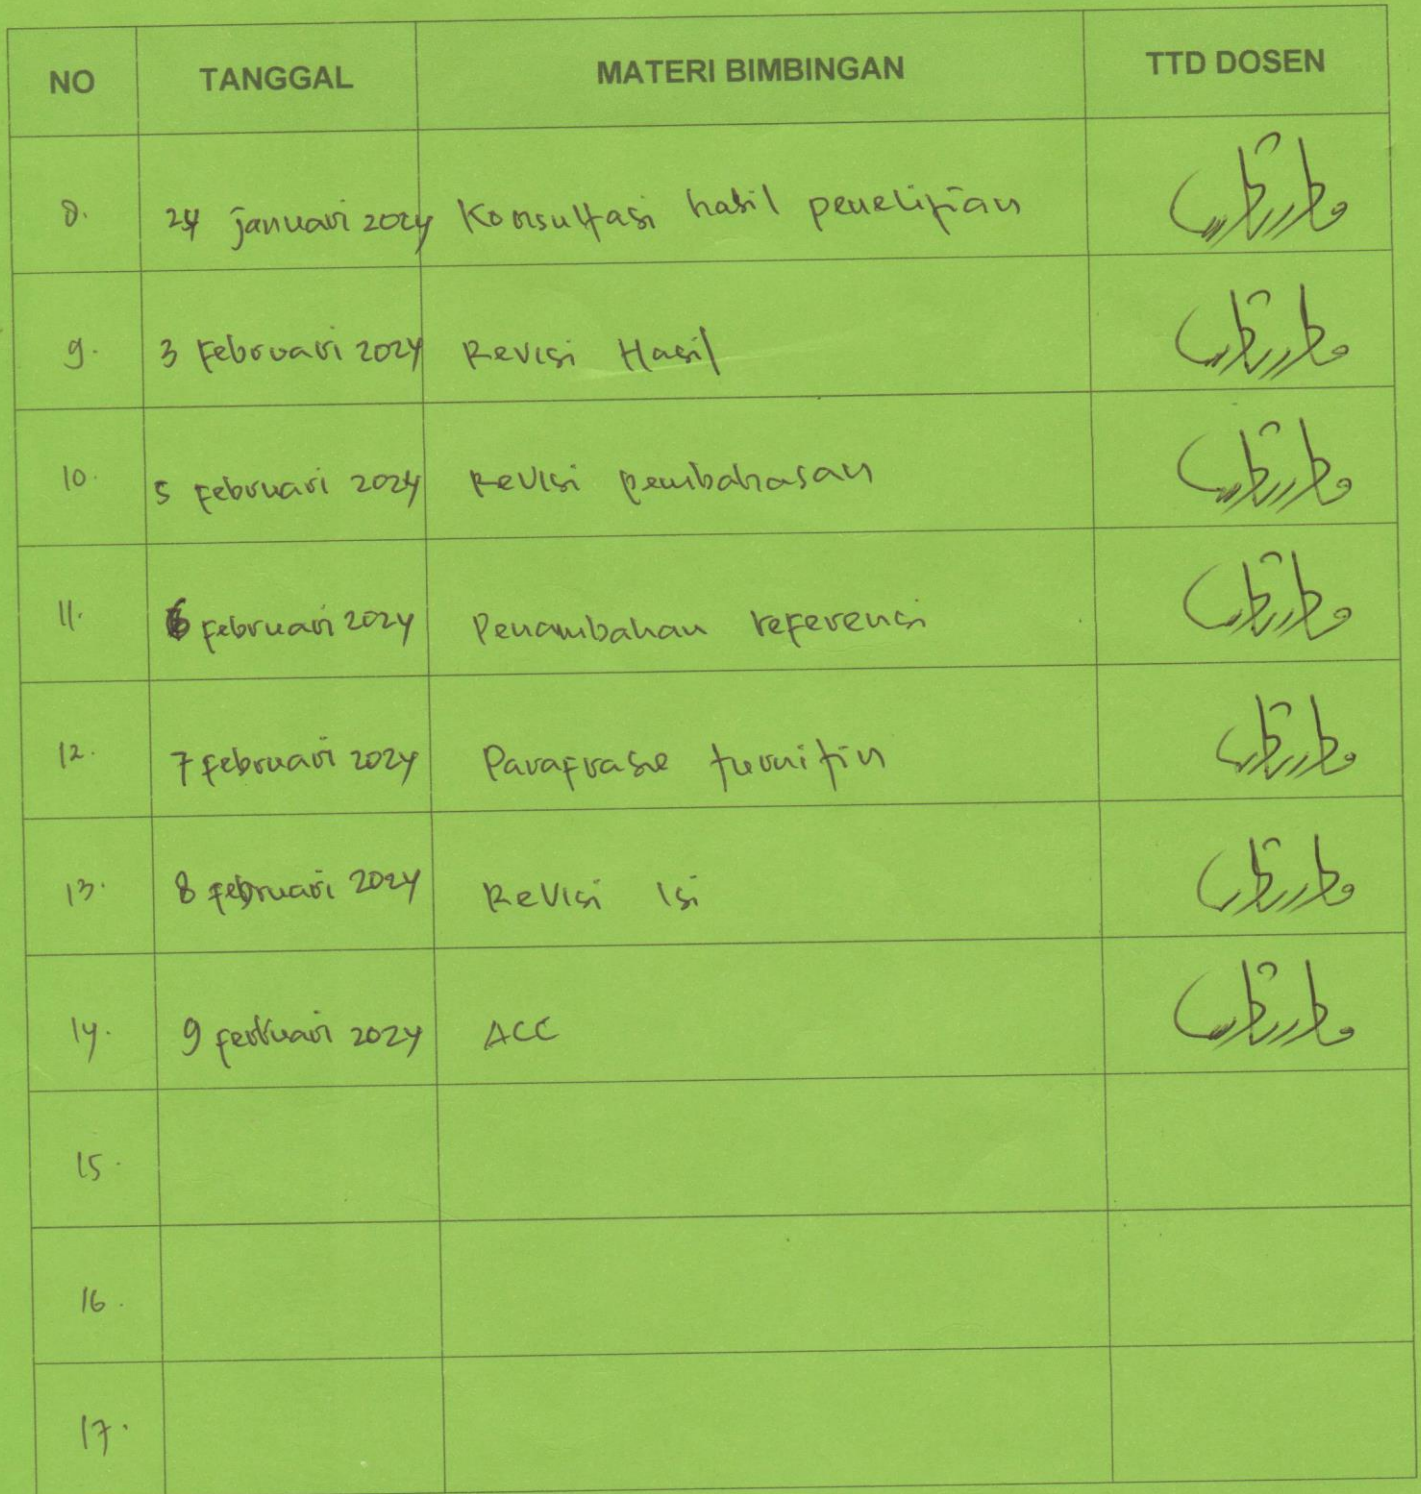 NO TANGGAL MATERI BIMBINGAN TTD DOSEN
8. 24 januari 2024 Konsultasi hasil penelitian
9. 3 Februari 2024 Revisi Hasil
10. 5 Februari 2024 Revisi pembahasan
11. 6 februari 2024 Penambahan referensi
12. 7 februari 2024 Parafrase turnitin
13. 8 februari 2024 Revisi isi
14. 9 februari 2024 ACC
15.
16.
17.